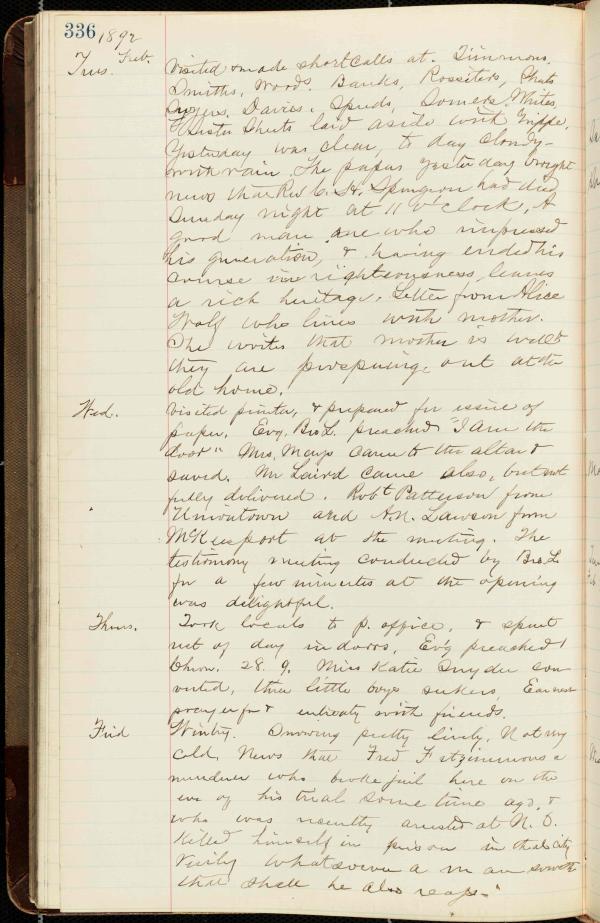 336 1892
Feb.
Tues. Visited & made short calls at. Timmons,
Smiths, Woods. Banks, Rossiters,
Snyders, Davis. Spuds, Somers. Whites,
Sister Shuts laid aside with Grippe.
Yesterday was clear, to day cloudy
with rain. The papers yesterday brought
news that Rev C. H. Spurgeon had died
Sunday night at 11 o'clock. A
good man, one who impressed
his generation, & having ended his
course in righteousness, leaves
a rich heritage. Letter from Alice
Wolf who lives with mother.
She writes that mother is well &
they are prospering, out at the
old home.
Wed. Visited printer, & prepared for issue of
paper. Evg. Bro L. preached "I Am the
door" Mrs. Mays came to the altar &
saved. Mr Laird came also, but not
fully delivered. Robt Patterson from
Uniontown and A.N. Lawson from
McKeesport at the meeting. The
testimony meeting conducted by Bro. L
for a few minutes at the opening
was delightful.
Thurs. Took locals to p. office, & spent
rest of day in doors. Ev'g preached 1
Chron. 28. 9. Miss Katie Snyder con-
verted, three little boys seekers, Earnest
prayer for & entreaty with friends.
Frid Wintry. Snowing pretty lively, Not very
cold. News that Fred Fitzimmons a
murderer who broke jail here on the
eve of his trial some time ago, &
who was recently arrested at N. O.
killed himself in prison in that city
Verily whatsoever a man soweth
that shall he also reap."